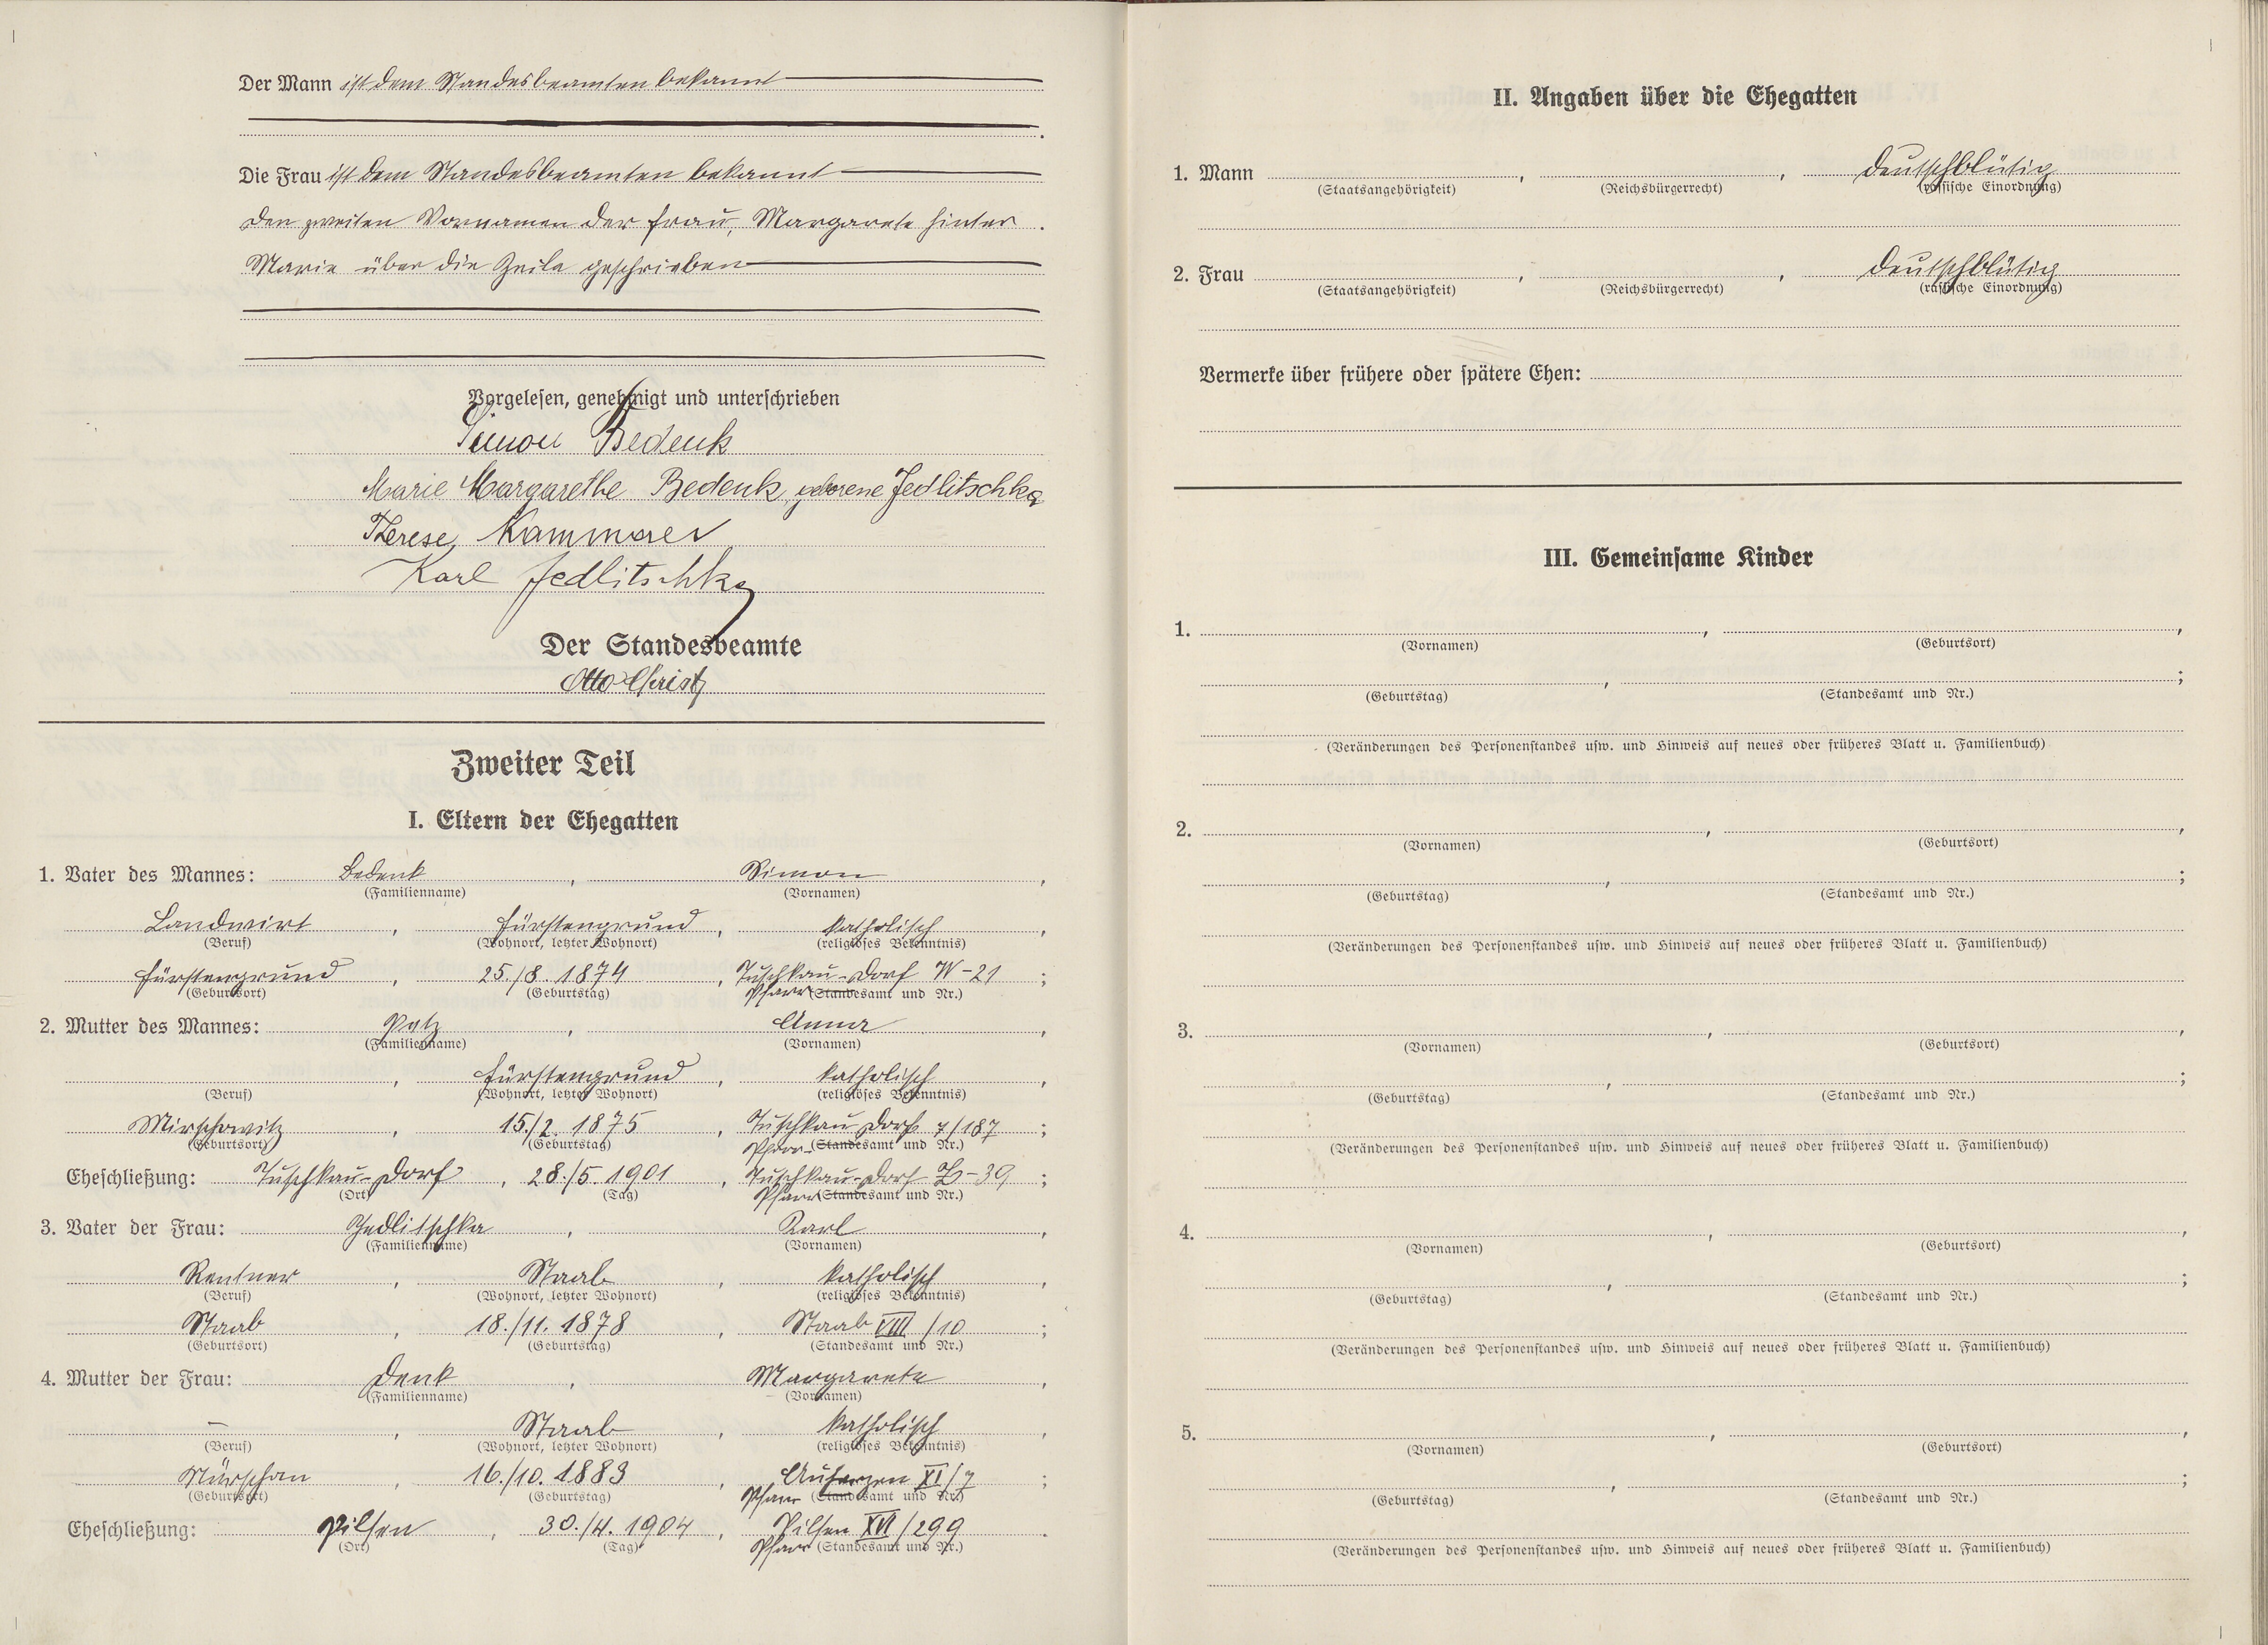 Der Mann ist dem Standesbeamten bekannt
Die Frau ist dem Standesbeamten bekannt
Den zweiten Vornamen der Frau, Margarete hinter
Marie über die Zeile geschrieben
Vorgelesen, genehmigt und unterschrieben
Simon Bedenk
Marie Margarethe Bedenk, geborene Jedlitschka
Therese Kammerer
Karl Jedlitschka
Der Standesbeamte
Otto Christ
Zweiter Teil
I. Eltern der Ehegatten
1. Vater des Mannes: Bedenk, Simon,
(Familienname) (Vornamen)
Landwirt, Fürstengrund, katholisch,
(Beruf) (Wohnort, letzter Wohnort) (religiöses Bekenntnis)
Fürstengrund, 25./8. 1874, Tuschkau-Dorf IV-21;
(Geburtsort) (Geburtstag) Pfarr (Standesamt und Nr.)
2. Mutter des Mannes: Potz, Anna,
(Familienname) (Vornamen)
, Fürstengrund, katholisch,
(Beruf) (Wohnort, letzter Wohnort) (religiöses Bekenntnis)
Mirschowitz, 15./2. 1875, Tuschkau Dorf 7/187;
(Geburtsort) (Geburtstag) Pfarr (Standesamt und Nr.)
Eheschließung: Tuschkau-Dorf, 28./5. 1901, Tuschkau-Dorf -39;
(Ort) (Tag) Pfarr (Standesamt und Nr.)
3. Vater der Frau: Jedlitschka, Karl,
(Familienname) (Vornamen)
Rentner, Staab, katholisch,
(Beruf) (Wohnort, letzter Wohnort) (religiöses Bekenntnis)
Staab, 18./11. 1878, Staab VIII/10;
(Geburtsort) (Geburtstag) (Standesamt und Nr.)
4. Mutter der Frau: Denk, Margarete,
(Familienname) (Vornamen)
–, Staab, katholisch,
(Beruf) (Wohnort, letzter Wohnort) (religiöses Bekenntnis)
Nürschan, 16./10. 1883, XI/7;
(Geburtsort) (Geburtstag) Pfarr (Standesamt und Nr.)
Eheschließung: Pilsen, 30./4. 1904, Pilsen XVI/299.
(Ort) (Tag) Pfarr (Standesamt und Nr.)
II. Angaben über die Ehegatten
1. Mann , , deutschblütig
(Staatsangehörigkeit) (Reichsbürgerrecht) (rassische Einordnung)
2. Frau , , deutschblütig
(Staatsangehörigkeit) (Reichsbürgerrecht) (rassische Einordnung)
Vermerke über frühere oder spätere Ehen:
III. Gemeinsame Kinder
1. , ,
(Vornamen) (Geburtsort)
, ;
(Geburtstag) (Standesamt und Nr.)
(Veränderungen des Personenstandes usw. und Hinweis auf neues oder früheres Blatt u. Familienbuch)
2. , ,
(Vornamen) (Geburtsort)
, ;
(Geburtstag) (Standesamt und Nr.)
(Veränderungen des Personenstandes usw. und Hinweis auf neues oder früheres Blatt u. Familienbuch)
3. , ,
(Vornamen) (Geburtsort)
, ;
(Geburtstag) (Standesamt und Nr.)
(Veränderungen des Personenstandes usw. und Hinweis auf neues oder früheres Blatt u. Familienbuch)
4. , ,
(Vornamen) (Geburtsort)
, ;
(Geburtstag) (Standesamt und Nr.)
(Veränderungen des Personenstandes usw. und Hinweis auf neues oder früheres Blatt u. Familienbuch)
5. , ,
(Vornamen) (Geburtsort)
, ;
(Geburtstag) (Standesamt und Nr.)
(Veränderungen des Personenstandes usw. und Hinweis auf neues oder früheres Blatt u. Familienbuch)